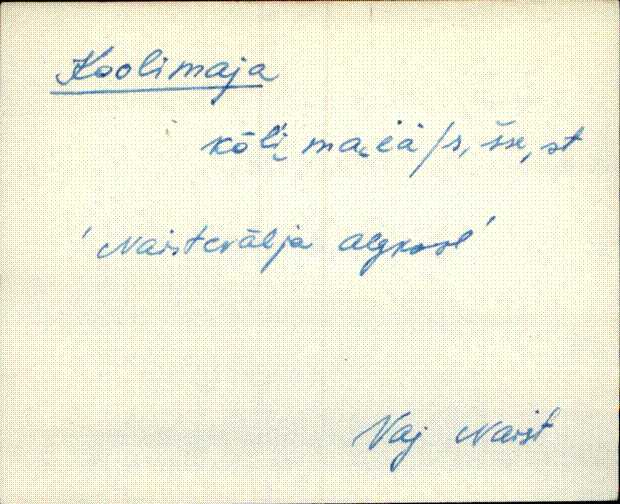 Koolimaja
kōli̮ ma̮i̯ă /s, -šše, -st
' Naistevälja algkool '
Vaj Naist